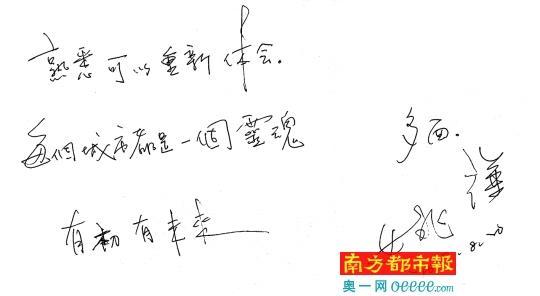 熟悉可以重新体会.
每個城市都是一個靈魂
有初有未来
多面.
南方都市報
奥一网 oeeee.com